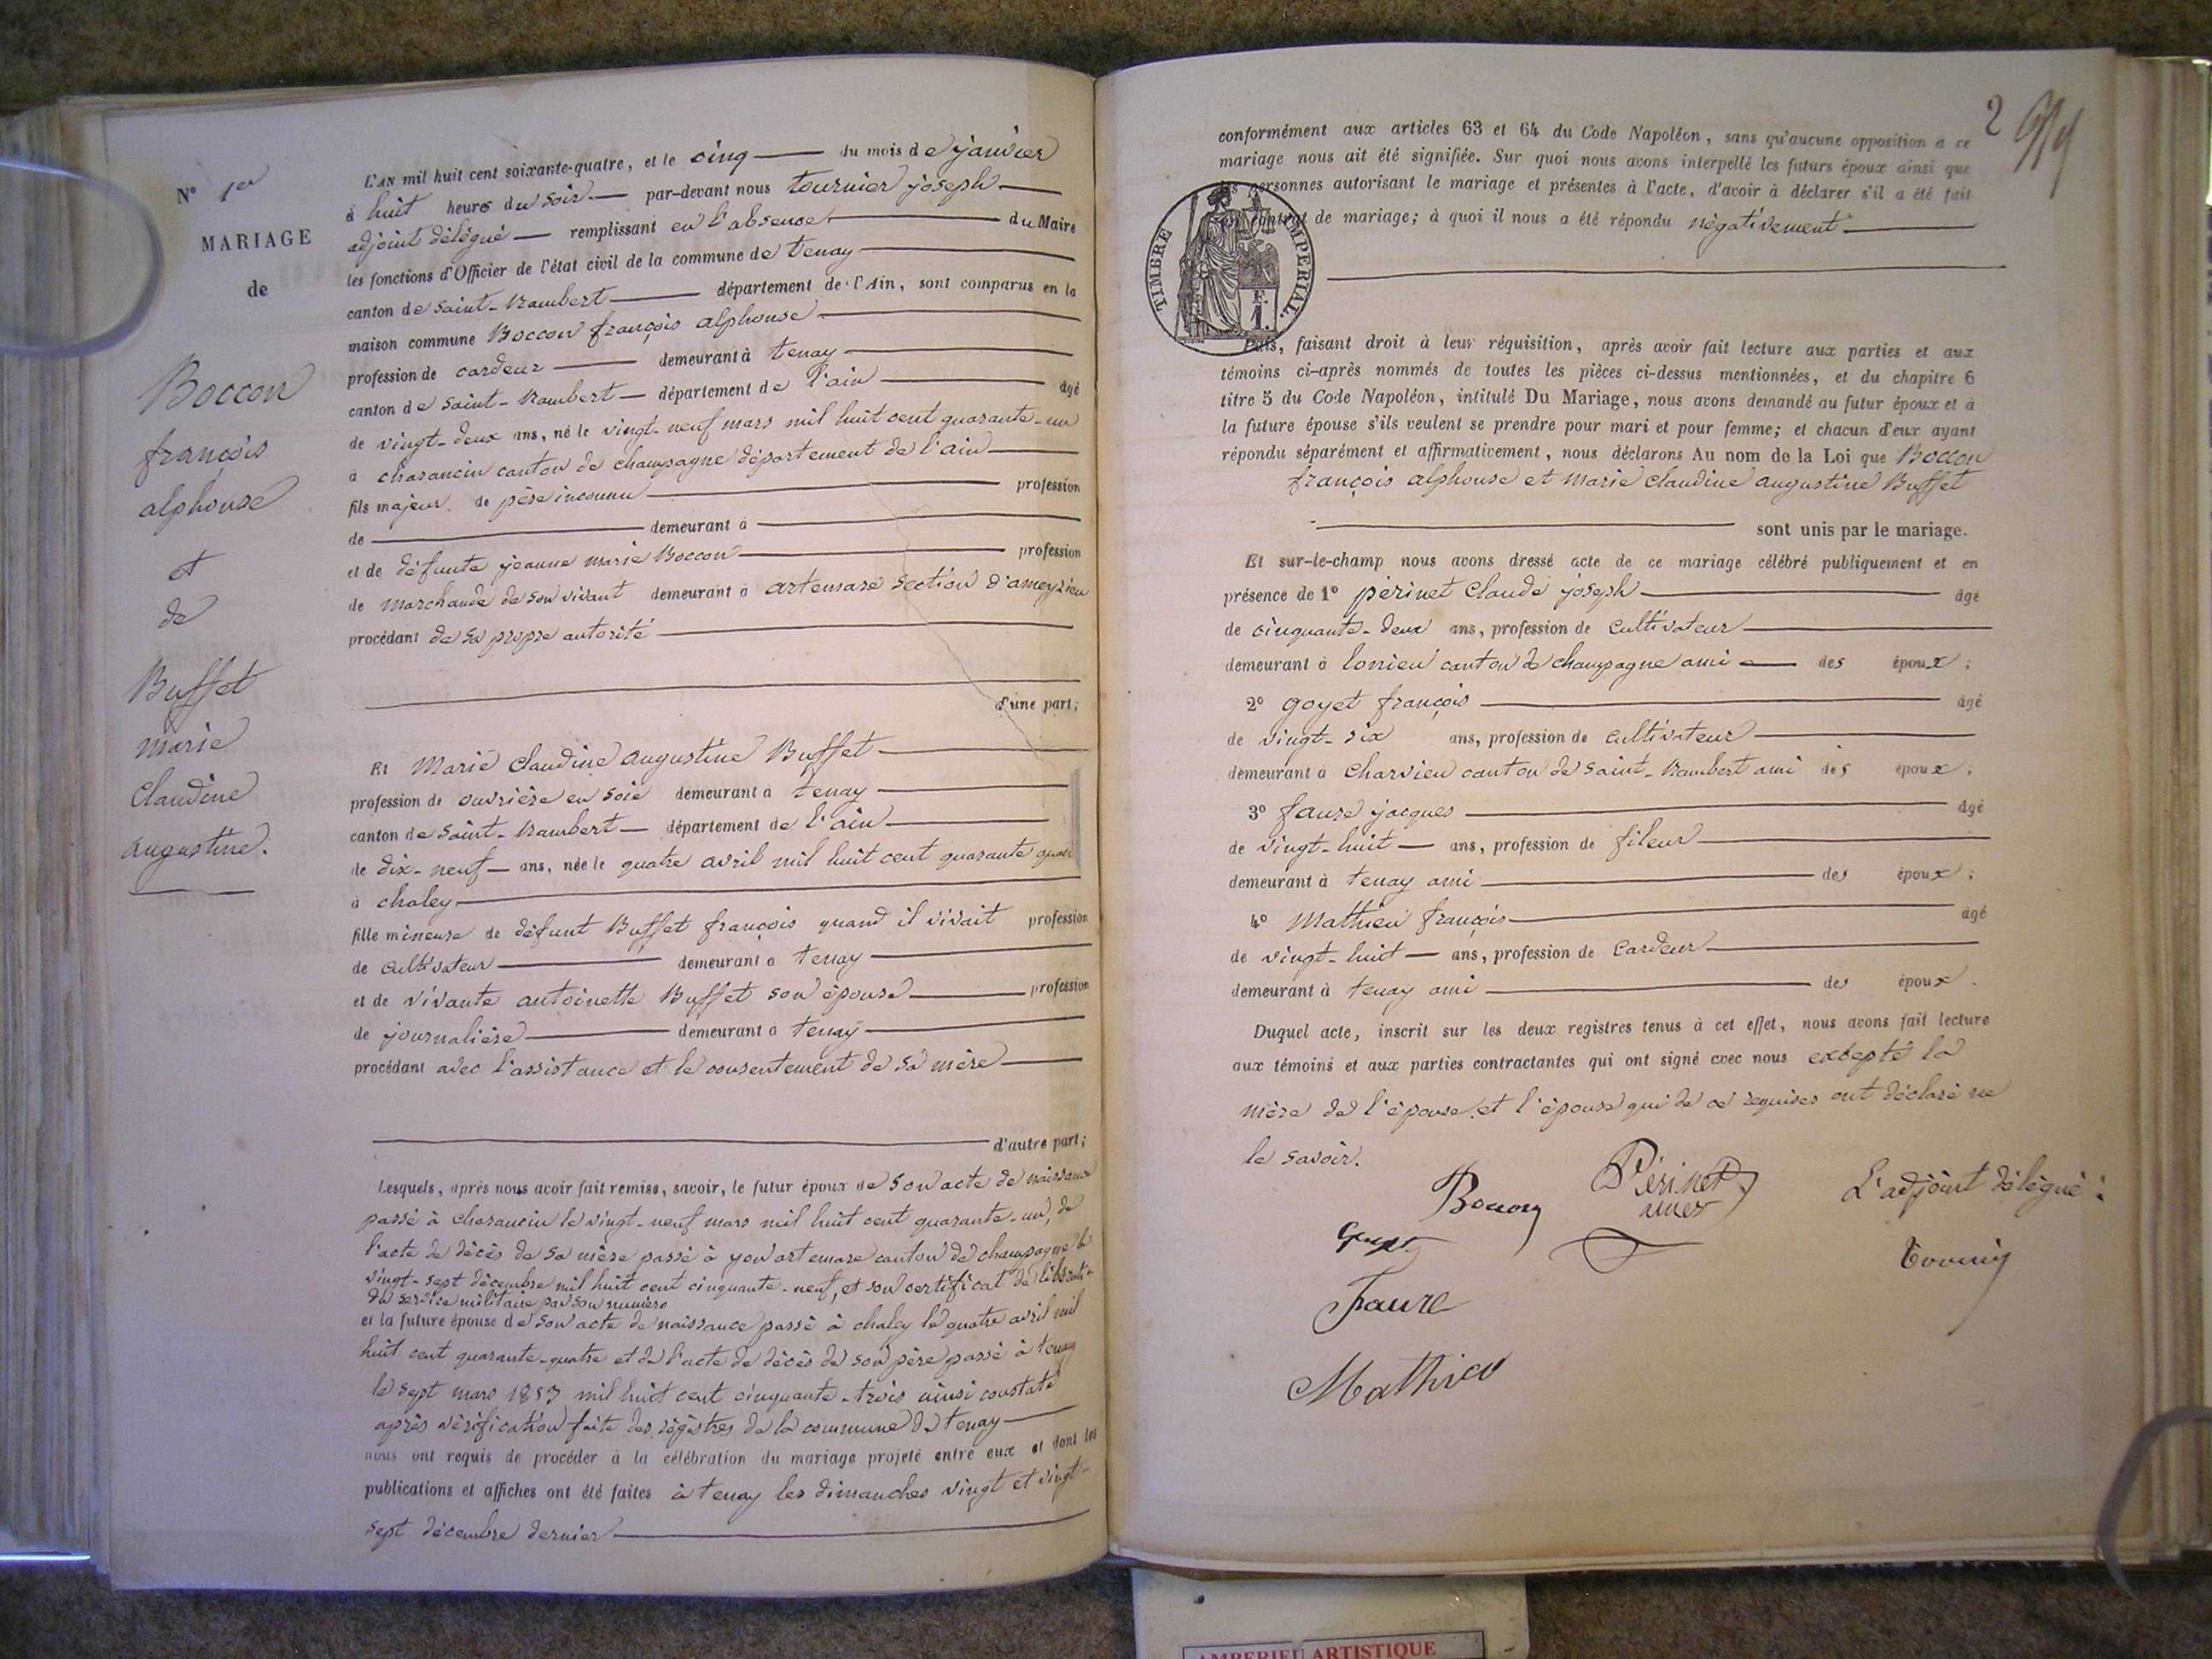 N° 1er
MARIAGE
de
Boccon
françois
alphonse
et
de
Buffet
marie
Claudine
augustine.
L'AN mil huit cent soixante-quatre, et le cinq du mois de janvier
à huit heures du soir par-devant nous tournier joseph
adjoint délégué remplissant en l'absence du Maire
les fonctions d'Officier de l'état civil de la commune de tenay
canton de saint-Rambert département de l'Ain, sont comparus en la
maison commune Boccon françois alphonse
profession de cardeur demeurant à tenay
canton de saint-Rambert département de l'ain âgé
de vingt-deux ans, né le vingt-neuf mars mil huit cent quarante-un
à charancin canton de champagne département de l'ain
fils majeur de père inconnu profession
de demeurant à
et de défunte jeanne marie Boccon profession
de marchande de son vivant demeurant à artemare section d'ameyzieu
procédant de sa propre autorité
d'une part;
Et Marie Claudine augustine Buffet
profession de ouvrière en soie demeurant à tenay
canton de saint-Rambert département de l'ain
de dix-neuf ans, née le quatre avril mil huit cent quarante quatre
à chaley
fille mineure de défunt Buffet françois quand il vivait profession
de cultivateur demeurant à tenay
et de vivante antoinette Buffet son épouse profession
de journalière demeurant à tenay
procédant avec l'assistance et le consentement de sa mère
d'autre part;
Lesquels, après nous avoir fait remise, savoir, le futur époux de son acte de naissance
passé à charancin le vingt-neuf mars mil huit cent quarante-un, de
l'acte de décès de sa mère passé à yon artemare canton de champagne le
vingt-sept décembre mil huit cent cinquante-neuf, et son certificat de libération
du service militaire par son numéro
et la future épouse de son acte de naissance passé à chaley le quatre avril mil
huit cent quarante-quatre et de l'acte de décès de son père passé à tenay
le sept mars 1853 mil huit cent cinquante-trois ainsi constaté
après vérification faite des régistres de la commune de tenay
nous ont requis de procéder à la célébration du mariage projeté entre eux et dont les
publications et affiches ont été faites à tenay les dimanches vingt et vingt-
sept décembre dernier
2
conformément aux articles 63 et 64 du Code Napoléon, sans qu'aucune opposition a ce
mariage nous ait été signifiée. Sur quoi nous avons interpellé les futurs époux ainsi que
les personnes autorisant le mariage et présentes à l'acte, d'avoir à déclarer s'il a été fait
un contrat de mariage; à quoi il nous a été répondu négativement
TIMBRE IMPERIAL.
F.
1.
Puis, faisant droit à leur réquisition, après avoir fait lecture aux parties et aux
témoins ci-après nommés de toutes les pièces ci-dessus mentionnées, et du chapitre 6
titre 5 du Code Napoléon, intitulé Du Mariage, nous avons demandé au futur époux et à
la future épouse s'ils veulent se prendre pour mari et pour femme; et chacun d'eux ayant
répondu séparément et affirmativement, nous déclarons Au nom de la Loi que Boccon
françois alphonse et marie claudine augustine Buffet
sont unis par le mariage.
Et sur-le-champ nous avons dressé acte de ce mariage célébré publiquement et en
présence de 1° périnet Claude joseph âgé
de cinquante-deux ans, profession de cultivateur
demeurant à lonieu canton de champagne ami des époux;
2° goyet françois âgé
de vingt-six ans, profession de cultivateur
demeurant à charvieu canton de saint-Rambert ami des époux;
3° faure jacques âgé
de vingt-huit ans, profession de fileur
demeurant à tenay ami des époux;
4° Mathieu françois âgé
de vingt-huit ans, profession de Cardeur
demeurant à tenay ami des époux.
Duquel acte, inscrit sur les deux registres tenus à cet effet, nous avons fait lecture
aux témoins et aux parties contractantes qui ont signé avec nous excepté la
mère de l'épouse et l'épouse qui de ce requises ont déclaré ne
le savoir.
Boccon Périnet L'adjoint délégué:
Goyet
Faure
Mathieu
AMBERIEU ARTISTIQUE